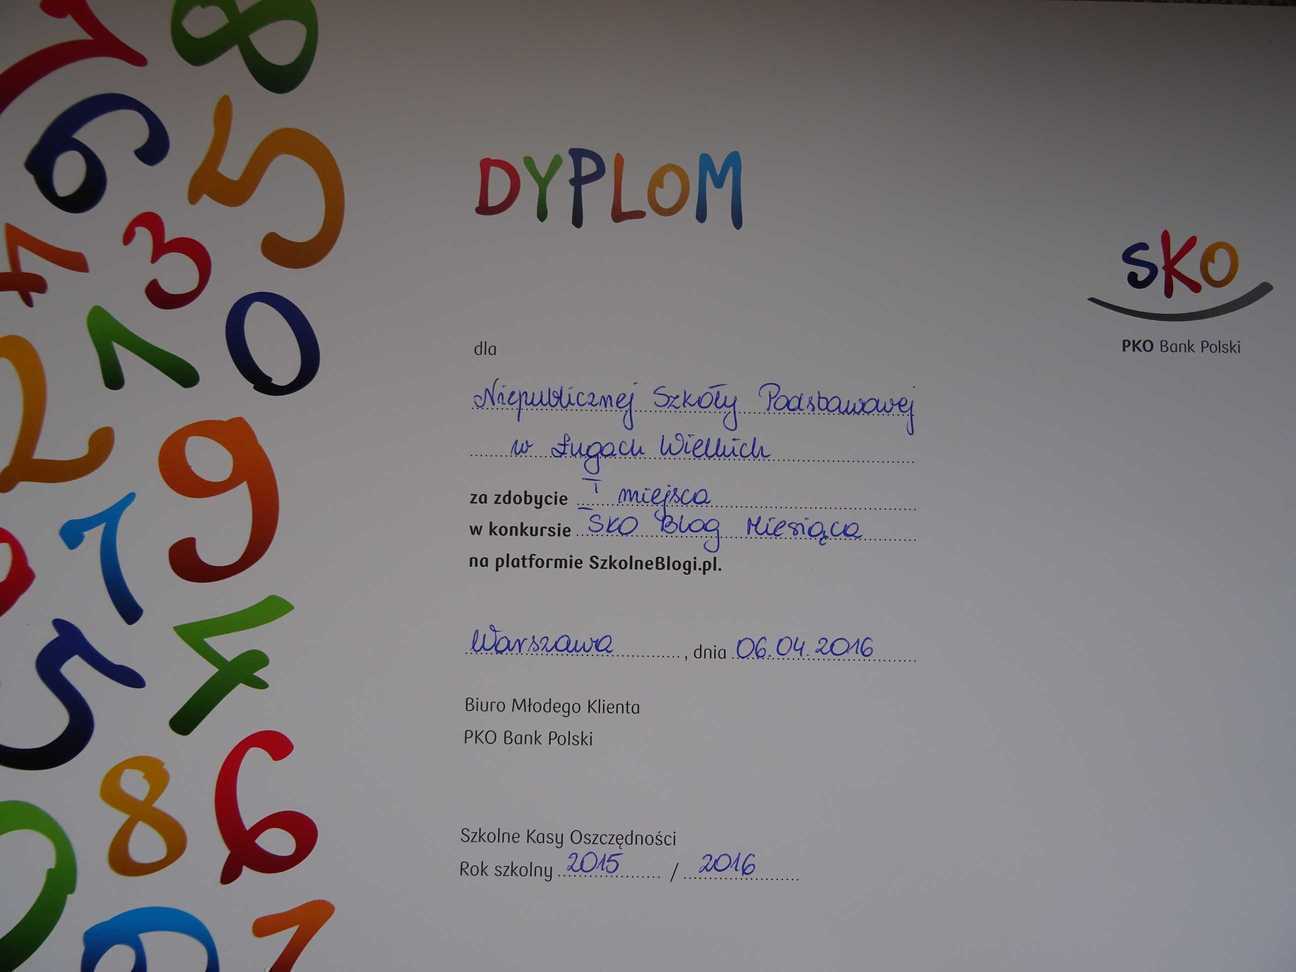 DYPLOM
SKO
PKO Bank Polski
dla
Niepublicznej Szkoły Podstawowej
w Ługach Wielkich
za zdobycie I miejsca
w konkursie SKO Blog Miesiąca
na platformie SzkolneBlogi.pl.
Warszawa, dnia 06.04.2016
Biuro Młodego Klienta
PKO Bank Polski
Szkolne Kasy Oszczędności
Rok szkolny 2015 / 2016